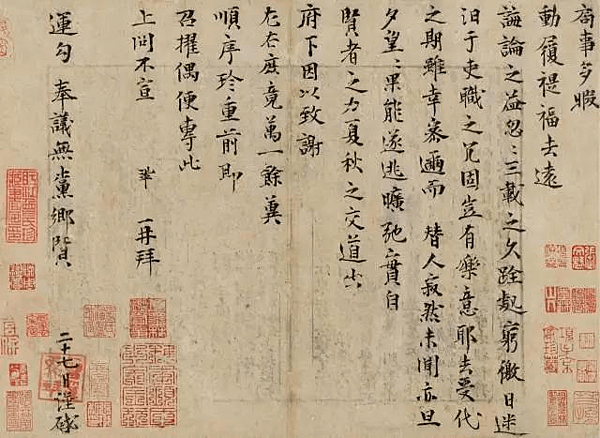 局事多暇
動履禔福去遠
誨論之益忽〻三載之久跧處窮徼日迷
汨于吏職之冗固豈有樂意耶去受代
之期雖幸密邇而 替人寂然未聞亦旦
夕望〻果能遂逃曠弛實自
賢者之力夏秋之交道出
府下因以致謝
左右庶竟萬一餘冀
順序珍重前即
召擢偶便專此
上問不宣 鞏 再拜
運勾 奉議無黨鄉賢 二十七日謹啓